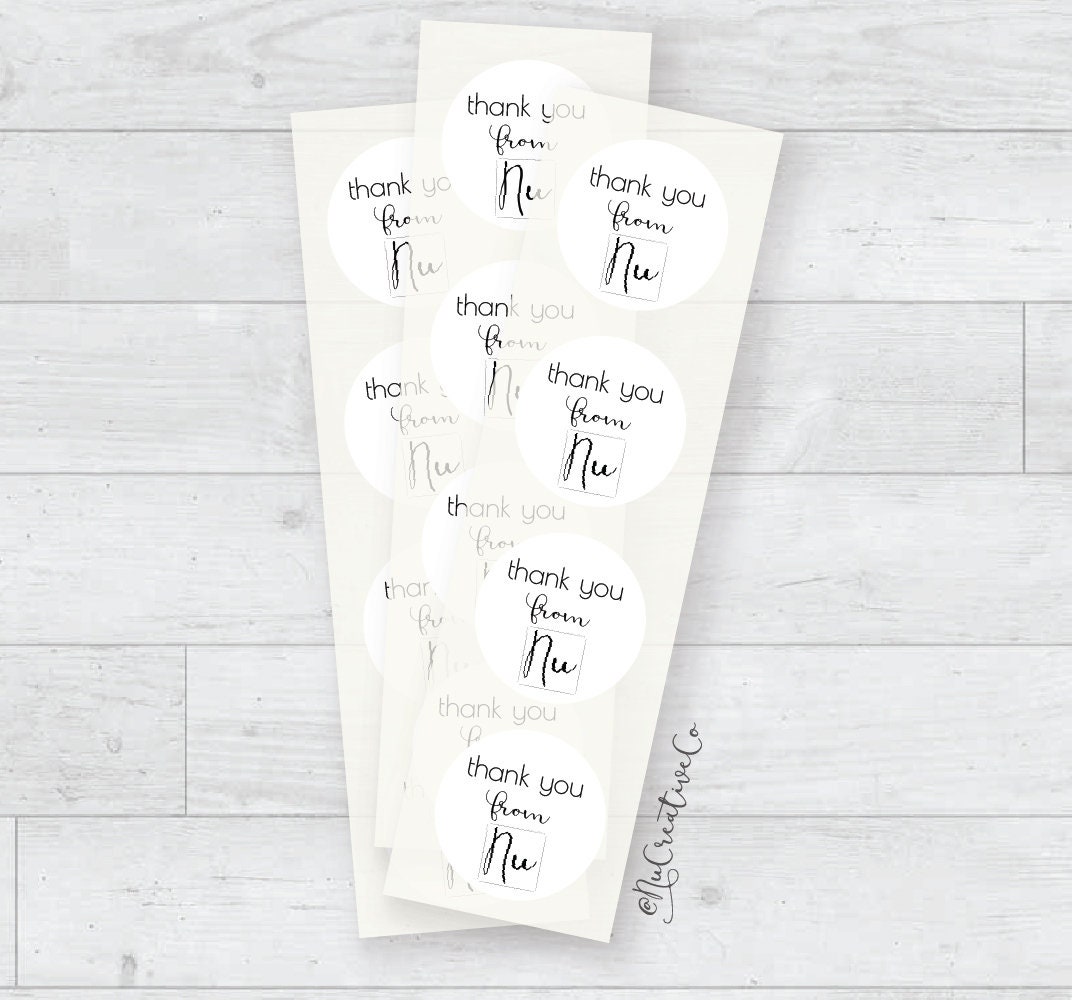 thank you
from
Nu
thank yo
from
Nu
thank you
from
Nu
thank you
from
Nu
thank y
from
Nu
thank you
from
Nu
thank you
from
Nu
thank you
from
Nu
thank you
thank you
from
Nu
@NuCreativeCo